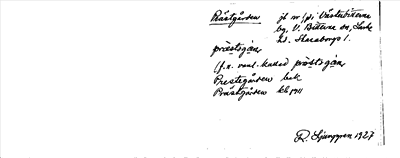 Prästgården jb nr 1 pi Västerbitterna
by, V. Bitterna sn, Laske
hd. Skaraborgs l.
präsṭgån
(f.n. vanl. kallad präṣtgån
Prestegården bek
Prästgården kk 1911
R. Ljunggren 1927